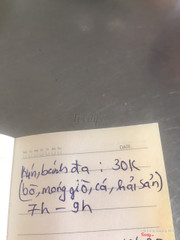 Bún, bánh đa : 30K
(bò, móng giò, cá, hải sản)
7h - 9h